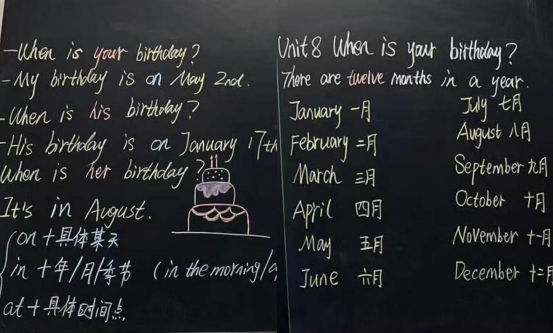 -When is your birthday?
-My birthday is on May 2nd.
-When is his birthday?
-His birthday is on January 17th
When is her birthday?
It's in August.
on+具体某天
in+年/月/季节 (in the morning/a
at+具体时间点
Unit 8 When is your birthday?
There are twelve months in a year.
January 一月
February 二月
March 三月
April 四月
May 五月
June 六月
July 七月
August 八月
September 九月
October 十月
November 十一月
December 十二月